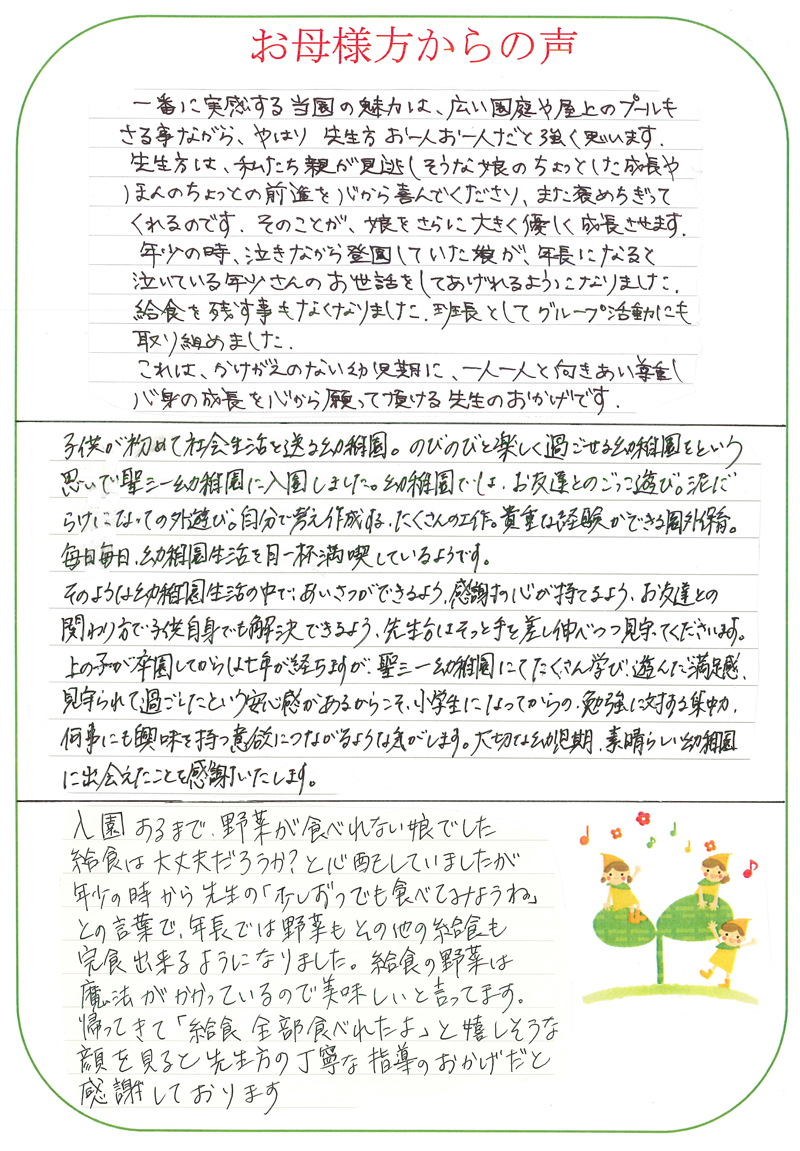 お母様方からの声
一番に実感する当園の魅力は、広い園庭や屋上のプールも
さる事ながら、やはり 先生方 お一人お一人だと強く思います.
先生方は、私たち親が見逃しそうな娘のちょっとした成長や
ほんのちょっとの前進を心から喜んでくださり、また褒めちぎって
くれるのです. そのことが、娘をさらに大きく優しく成長させます.
年少の時、泣きながら登園していた娘が、年長になると
泣いている年少さんのお世話をしてあげれるようになりました.
給食を残す事もなくなりました. 班長としてグループ活動にも
取り組めました.
これは、かけがえのない幼児期に、一人一人と向きあい尊重し
心身の成長を心から願って頂ける先生のおかげです.
子供が初めて社会生活を送る幼稚園。のびのびと楽しく過ごせる幼稚園をという
思いで聖三一幼稚園に入園しました。幼稚園では、お友達とのごっこ遊び。泥だ
らけになっての外遊び。自分で考え作成する、たくさんの工作。貴重な経験ができる園外保育。
毎日毎日、幼稚園生活を目一杯満喫しているようです。
そのような幼稚園生活の中で、あいさつができるよう、感謝の心が持てるよう、お友達との
関わり方で子供自身でも解決できるよう、先生方はそっと手を差し伸べつつ見守ってくださいます。
上の子が卒園してからは七年が経ちますが、聖三一幼稚園にてたくさん学び、遊んだ満足感、
見守られて過ごしたという安心感があるからこそ、小学生になってからの、勉強に対する集中力、
何事にも興味を持つ意欲につながるような気がします。大切な幼児期、素晴らしい幼稚園
に出会えたことを感謝いたします。
入園するまで、野菜が食べれない娘でした
給食は大丈夫だろうか？と心配をしていましたが
年少の時から先生の「少しずつでも食べてみようね」
との言葉で、年長では野菜もその他の給食も
完食出来るようになりました。給食の野菜は
魔法がかかっているので美味しいと言ってます。
帰ってきて「給食 全部食べれたよ」と嬉しそうな
顔を見ると先生方の丁寧な指導のおかげだと
感謝しております